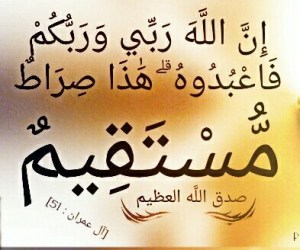 إِنَّ اللَّهَ رَبِّي وَرَبُّكُمْ
فَاعْبُدُوهُ ۗ هَٰذَا صِرَاطٌ
مُّسْتَقِيمٌ
صدق الله العظيم
[آل عمران : 51]